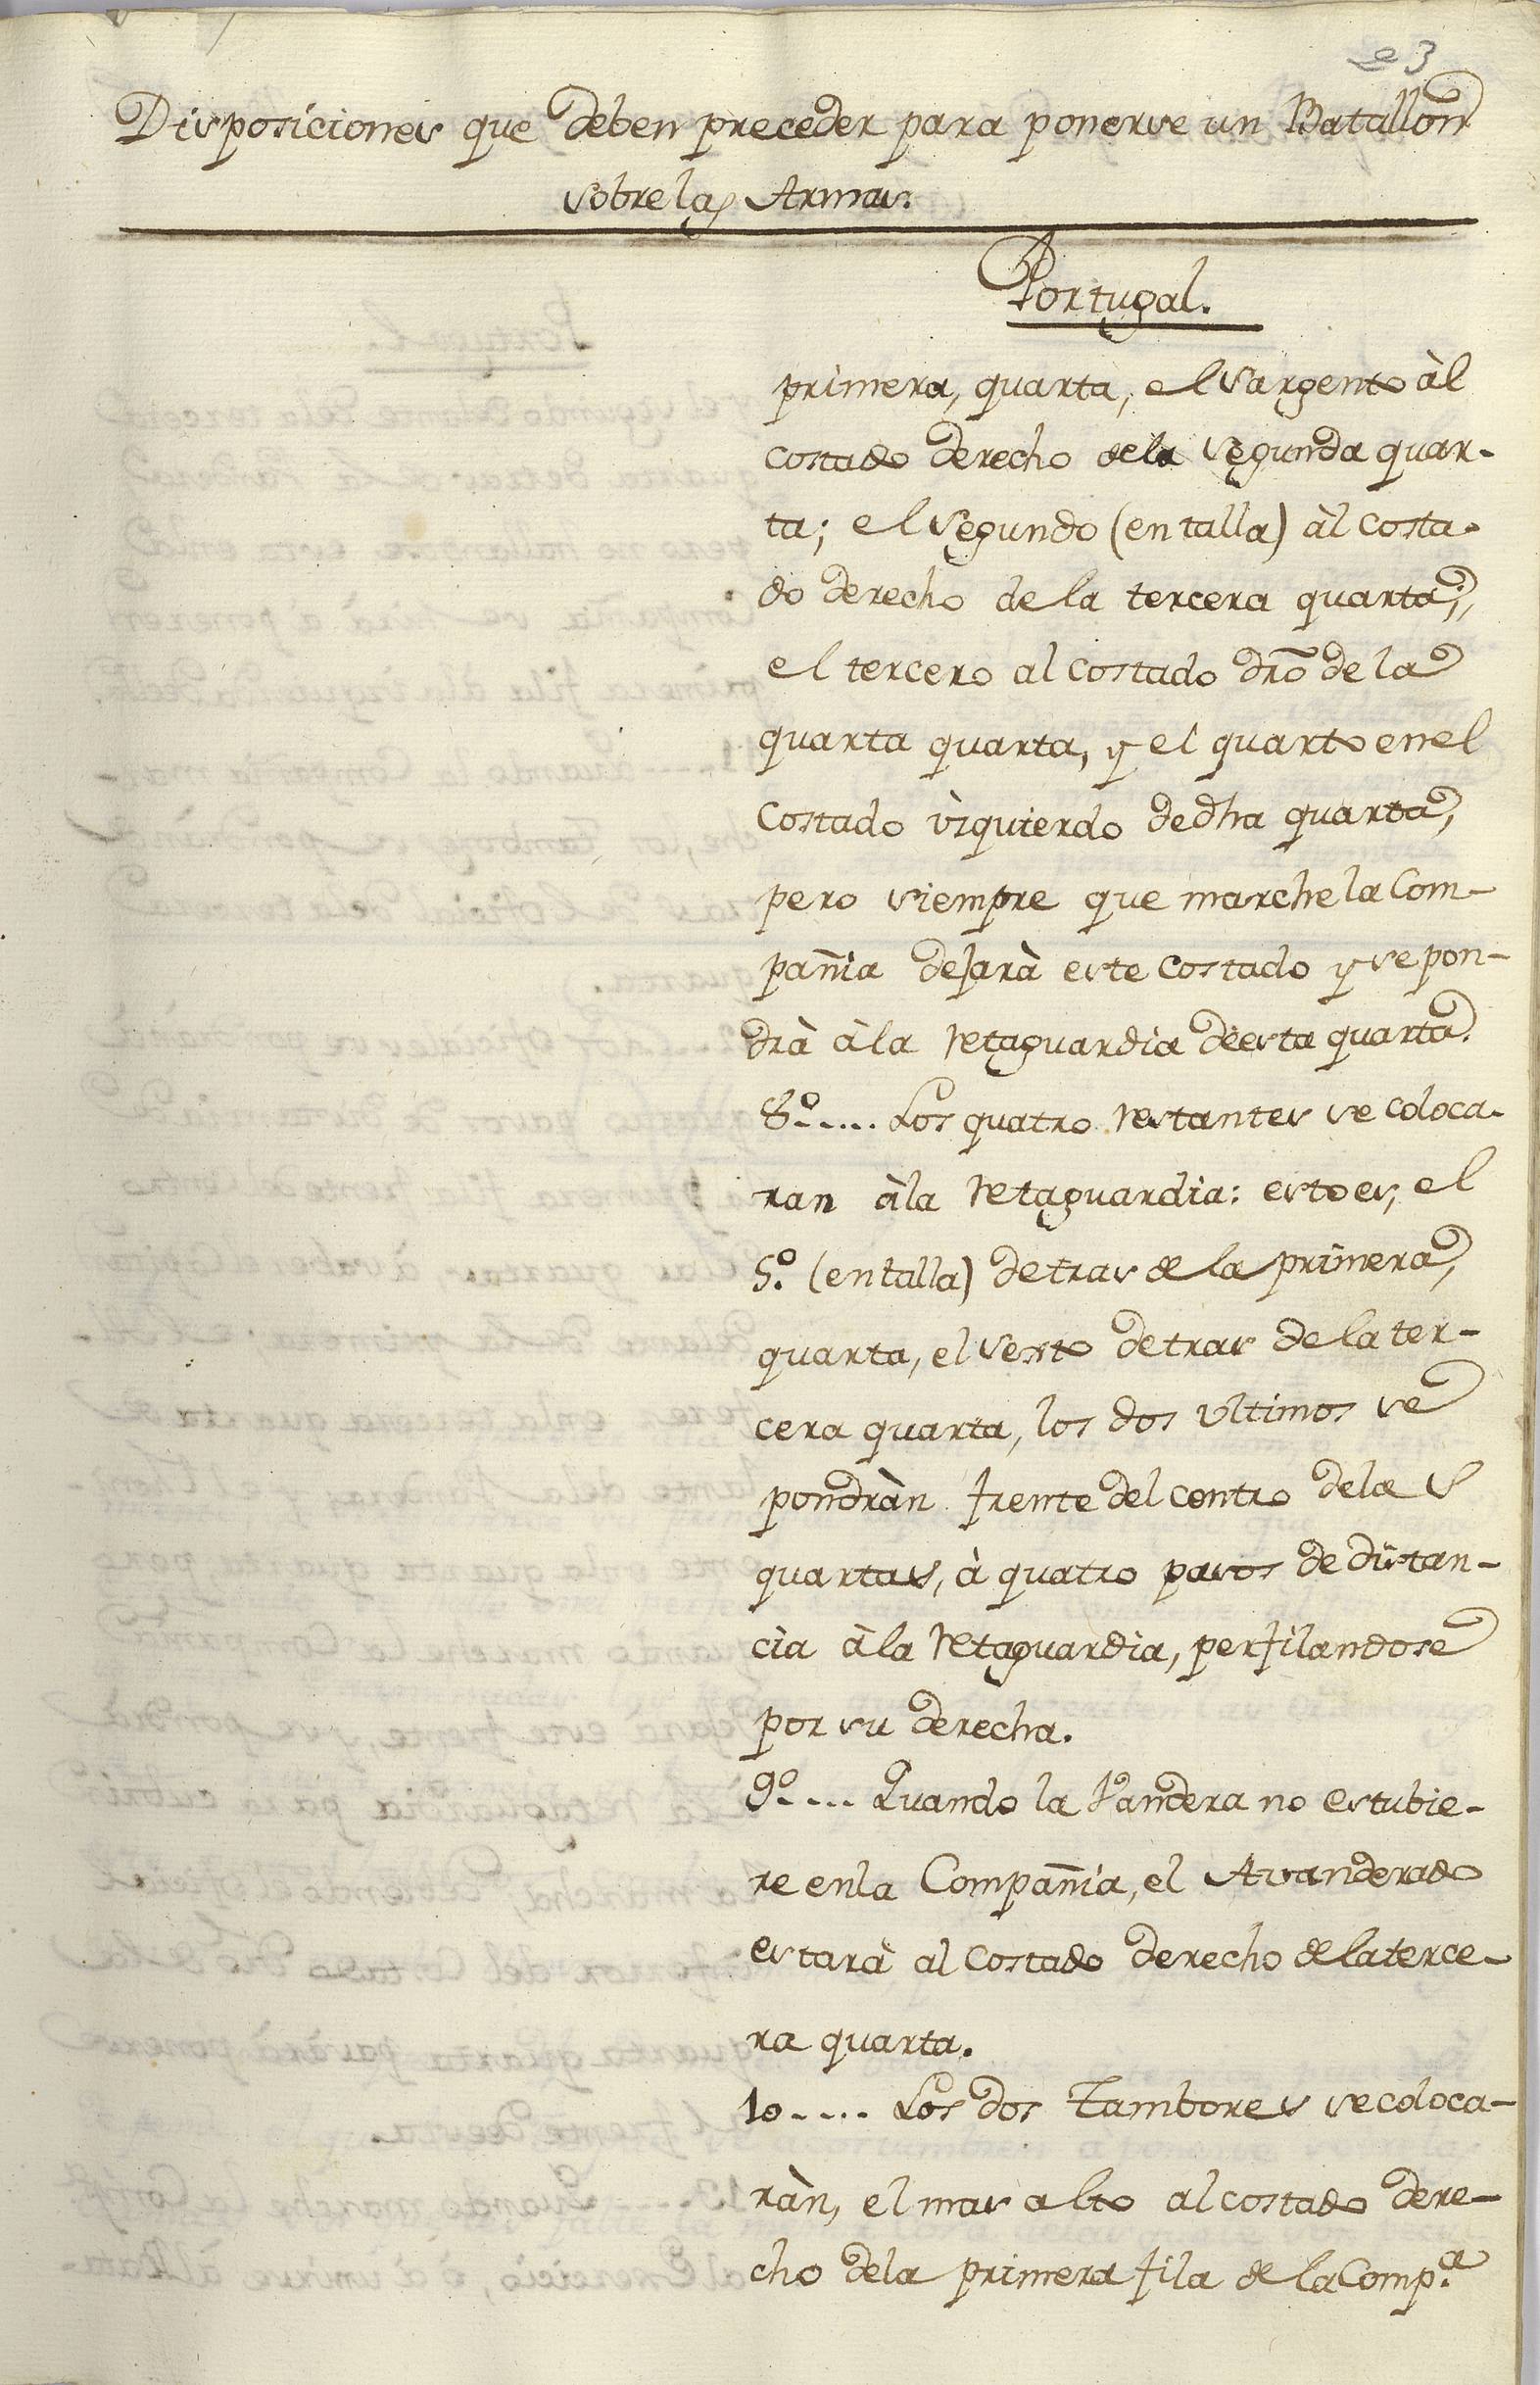 e 3
Disposiciones que deben preceder para ponerse un Batallon
sobre las Armas.
Portugal.
primera, quarta, el Sargento àl
costado derecho de la segunda quar-
ta; el segundo (en talla) àl costa-
do derecho de la tercera quarta;
el tercero al costado dr̃o de la
quarta quarta, y el quarto en el
Costado izquierdo de dha quarta,
pero siempre que marche la Com-
pañia dejarà este Costado y se pon-
drà à la retaguardia de esta quarta.
8º..... Los quatro restantes se coloca-
ran àla retaguardia: esto es, el
5.º (en talla) detras de la primera,
quarta, el sexto detras de la ter-
cera quarta, los dos ultimos se
pondràn frente del centro de las
quartas, à quatro pasos de distan-
cia à la retaguardia, perfilandose
por su derecha.
9º.... Quando la Vandera no estubie-
re en la Compañia, el Avanderado
estarà al Costado derecho de la terce-
ra quarta.
10..... Los dos Tambores se coloca-
ràn, el mas alto al costado dere-
cho de la primera fila de la Comp.ª